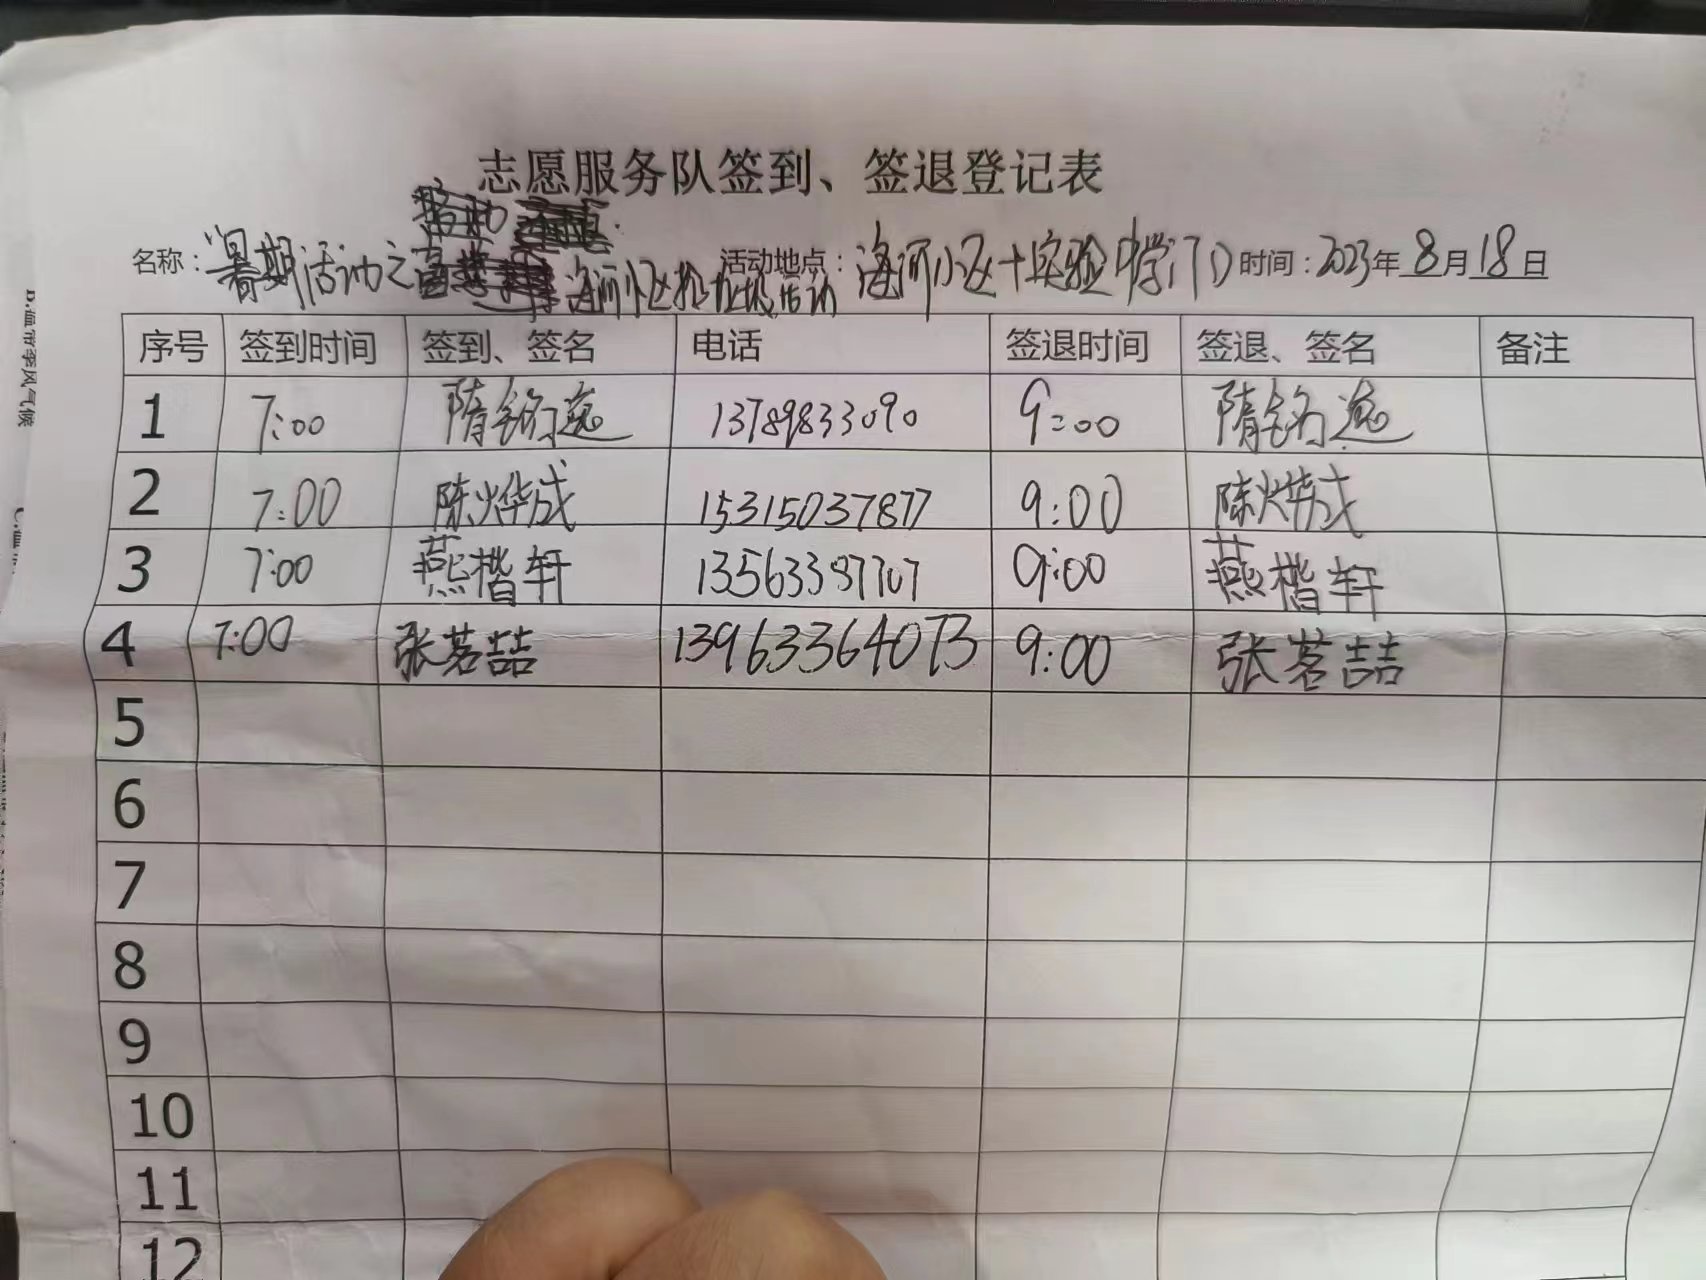 志愿服务队签到、签退登记表
名称：暑期活动之 海河小区捡垃圾活动 活动地点：海河小区十实验中学门口 时间：2023年8月18日
序号 签到时间 签到、签名 电话 签退时间 签退、签名 备注
1 7:00 隋铭逸 13789833090 9:00 隋铭逸
2 7:00 陈烨成 15315037877 9:00 陈烨成
3 7:00 燕楷轩 13563387707 9:00 燕楷轩
4 7:00 张茗喆 13963364073 9:00 张茗喆
5
6
7
8
9
10
11
12